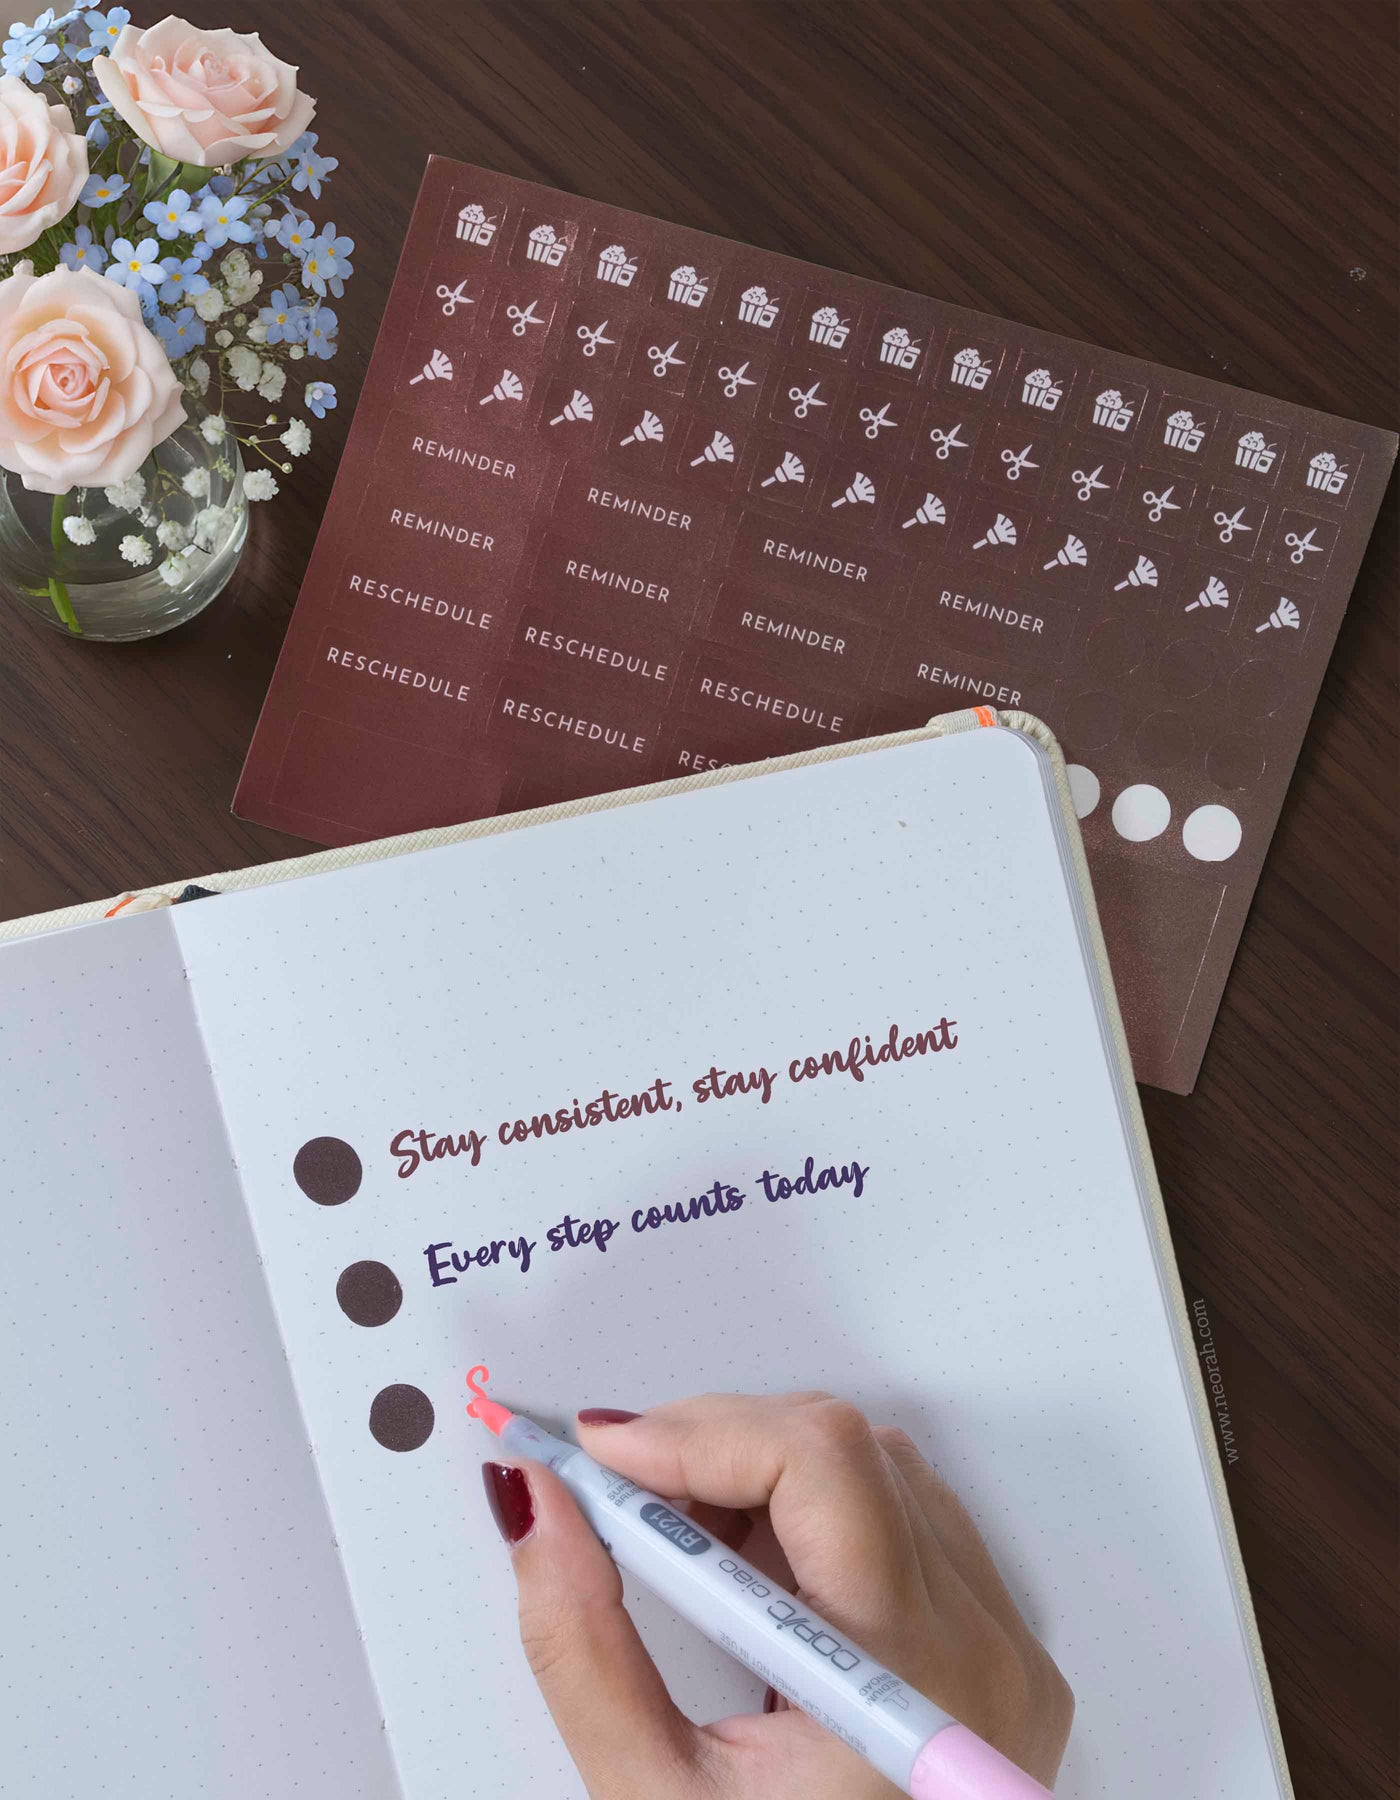 REMINDER REMINDER REMINDER REMINDER
REMINDER REMINDER REMINDER REMINDER
RESCHEDULE RESCHEDULE RESCHEDULE
RESCHEDULE RESCHEDULE
Stay consistent, stay confident
Every step counts today
S
SUPER
BRUSH
RV21
COPIC ciao
MEDIUM
BROAD
REPLACE CAP WHEN NOT IN USE
www.neorah.com